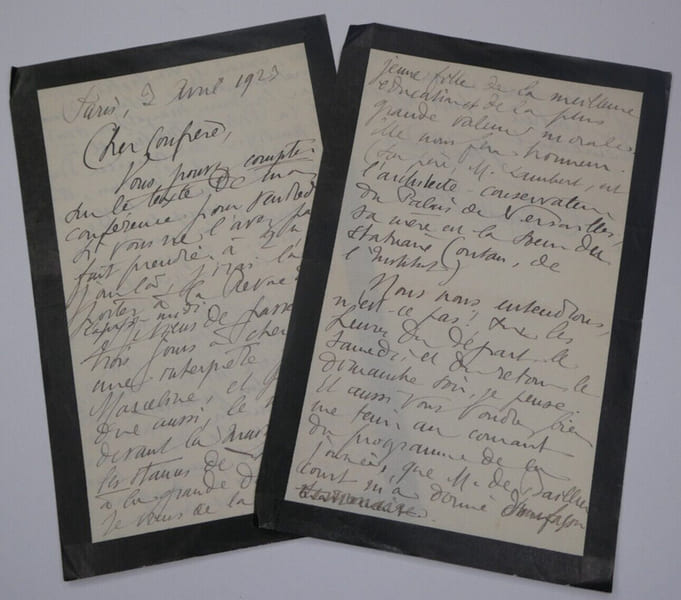 Paris, 3 Avril 1923
Cher Confrère,
Vous pouvez compter
sur le texte de ma
conférence pour vendredi
si vous ne l'avez pas
fait prendre à
jour là, j'irai
porter à la Revue
après-midi
Je viens de passer
trois jours à cher
une interprète
Masceline, et
que aussi le
devant la
les stances de
à la grande
Je viens de la
jeune fille de la meilleure
éducation et de la plus
grande valeur morale.
elle nous fera honneur.
Son père M. Lambert, est
l'architecte conservateur
du Palais de Versailles,
sa mère est la sœur du
statuaire Coutan, de
l'Institut)
Nous nous entendrons,
n'est ce pas? sur les
heures du départ le
samedi et du retour le
dimanche soir, je pense.
Et aussi vous voudrez bien
me tenir au courant
du programme de la
journée, que M. de
court m'a donné d'une façon